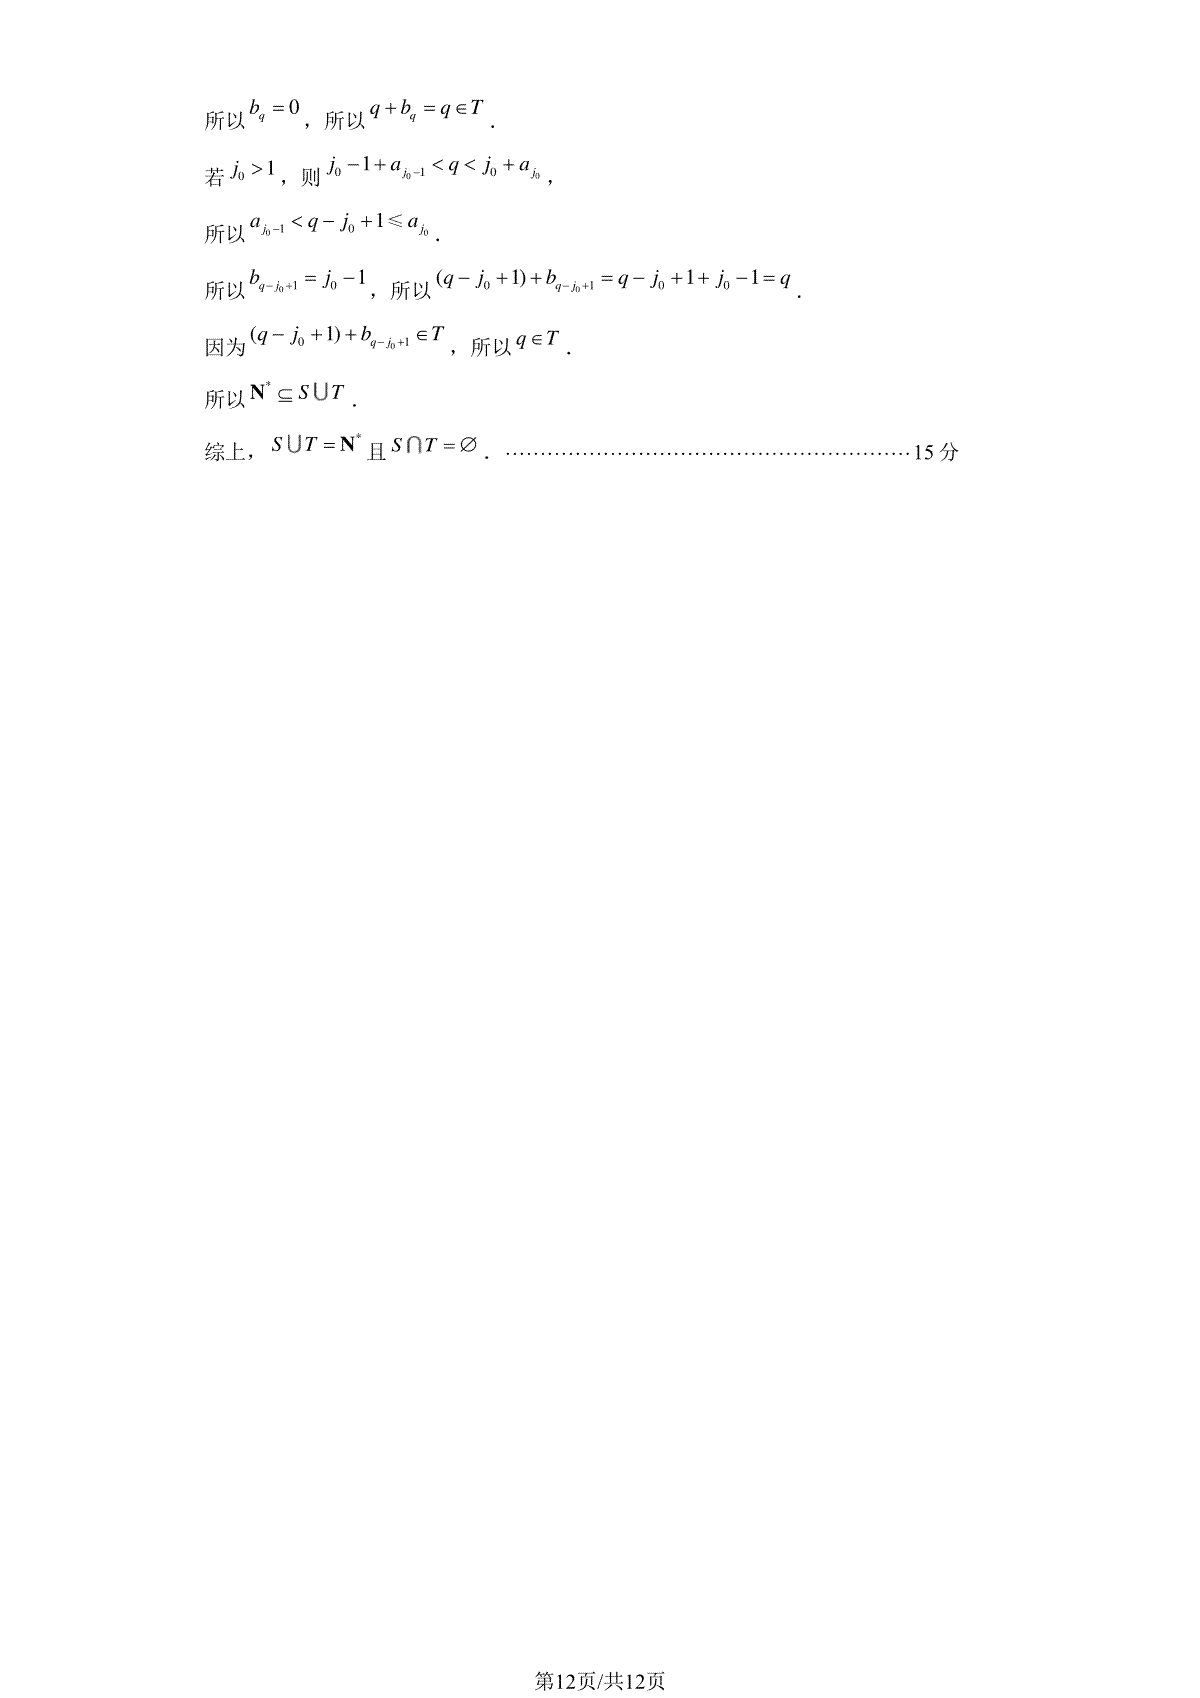 所以 $b_q=0$，所以 $q+b_q=q\in T$．
若 $j_0>1$，则 $j_0-1+a_{j_0-1}<q<j_0+a_{j_0}$，
所以 $a_{j_0-1}<q-j_0+1\leqslant a_{j_0}$．
所以 $b_{q-j_0+1}=j_0-1$，所以 $(q-j_0+1)+b_{q-j_0+1}=q-j_0+1+j_0-1=q$．
因为 $(q-j_0+1)+b_{q-j_0+1}\in T$，所以 $q\in T$．
所以 $\mathbf{N}^*\subseteq S\bigcup T$．
综上，$S\bigcup T=\mathbf{N}^*$ 且 $S\bigcap T=\varnothing$．··························································15 分
第12页/共12页